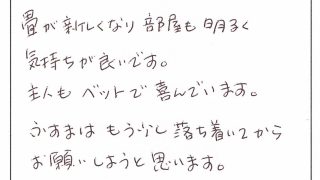 畳が新しくなり部屋も明るく
気持ちが良いです。
主人もベットで喜んでいます。
ふすまはもう少し落ち着いてから
お願いしようと思います。